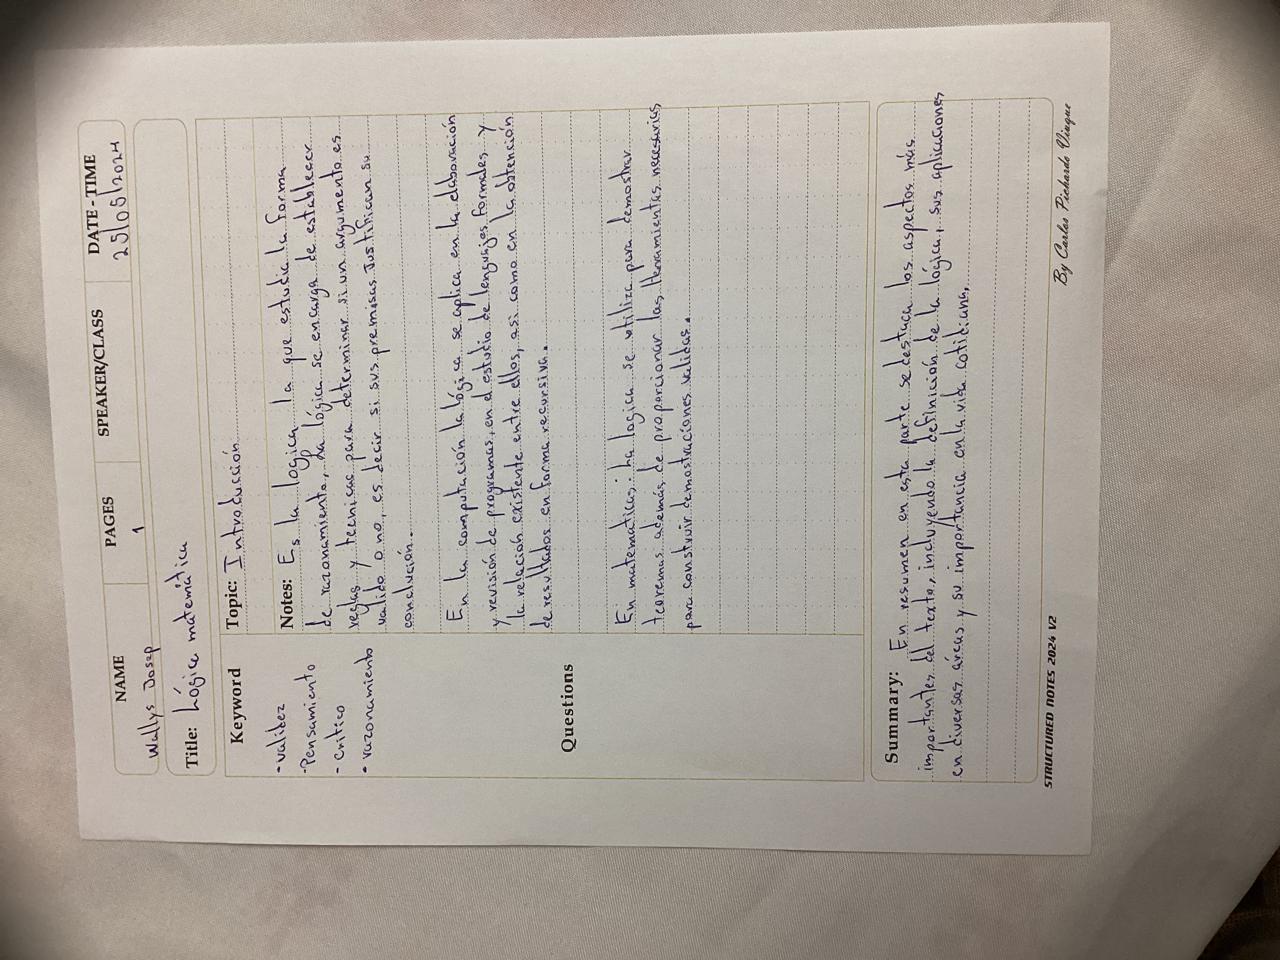 NAME PAGES SPEAKER/CLASS DATE - TIME
Wallys Josep 1 25/05/2024
Title: Lógica matemática
Keyword
-validez
-Pensamiento
- Critico
• razonamiento
Questions
Topic: Introducción
Notes: Es la logica la que estudia la forma
de razonamiento, La lógica se encarga de establecer
reglas y tecnicas para determinar si un argumento es
valido o no, es decir si sus premisas Justifican su
conclución.
En la computación la lógica se aplica en la elaboración
y revisión de programas, en el estudio de lenguajes formales y
la relación existente entre ellos, asi como en la obtención
de resultados en forma recursiva.
En matematicas: La logica se utiliza para demostrar
teoremas además de proporcionar las Herramientas necesarias
para construir demostraciones validas.
Summary: En resumen en esta parte se destaca los aspectos más
importantes del texto, incluyendo la definición de la lógica, sus aplicaciones
en diversas áreas y su importancia en la vida cotidiana,
STRUCTURED NOTES 2024 V2
By Carlos Pichardo Viuque